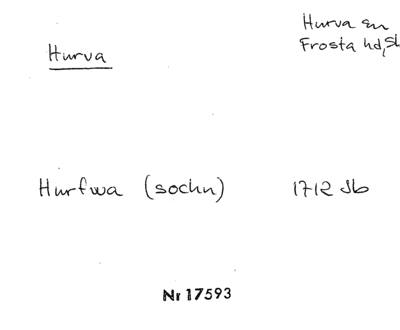 Hurva
Hurva sn
Frosta hd, Sk
Hurfwa (sochn)
1712 Jb
Nr 17593